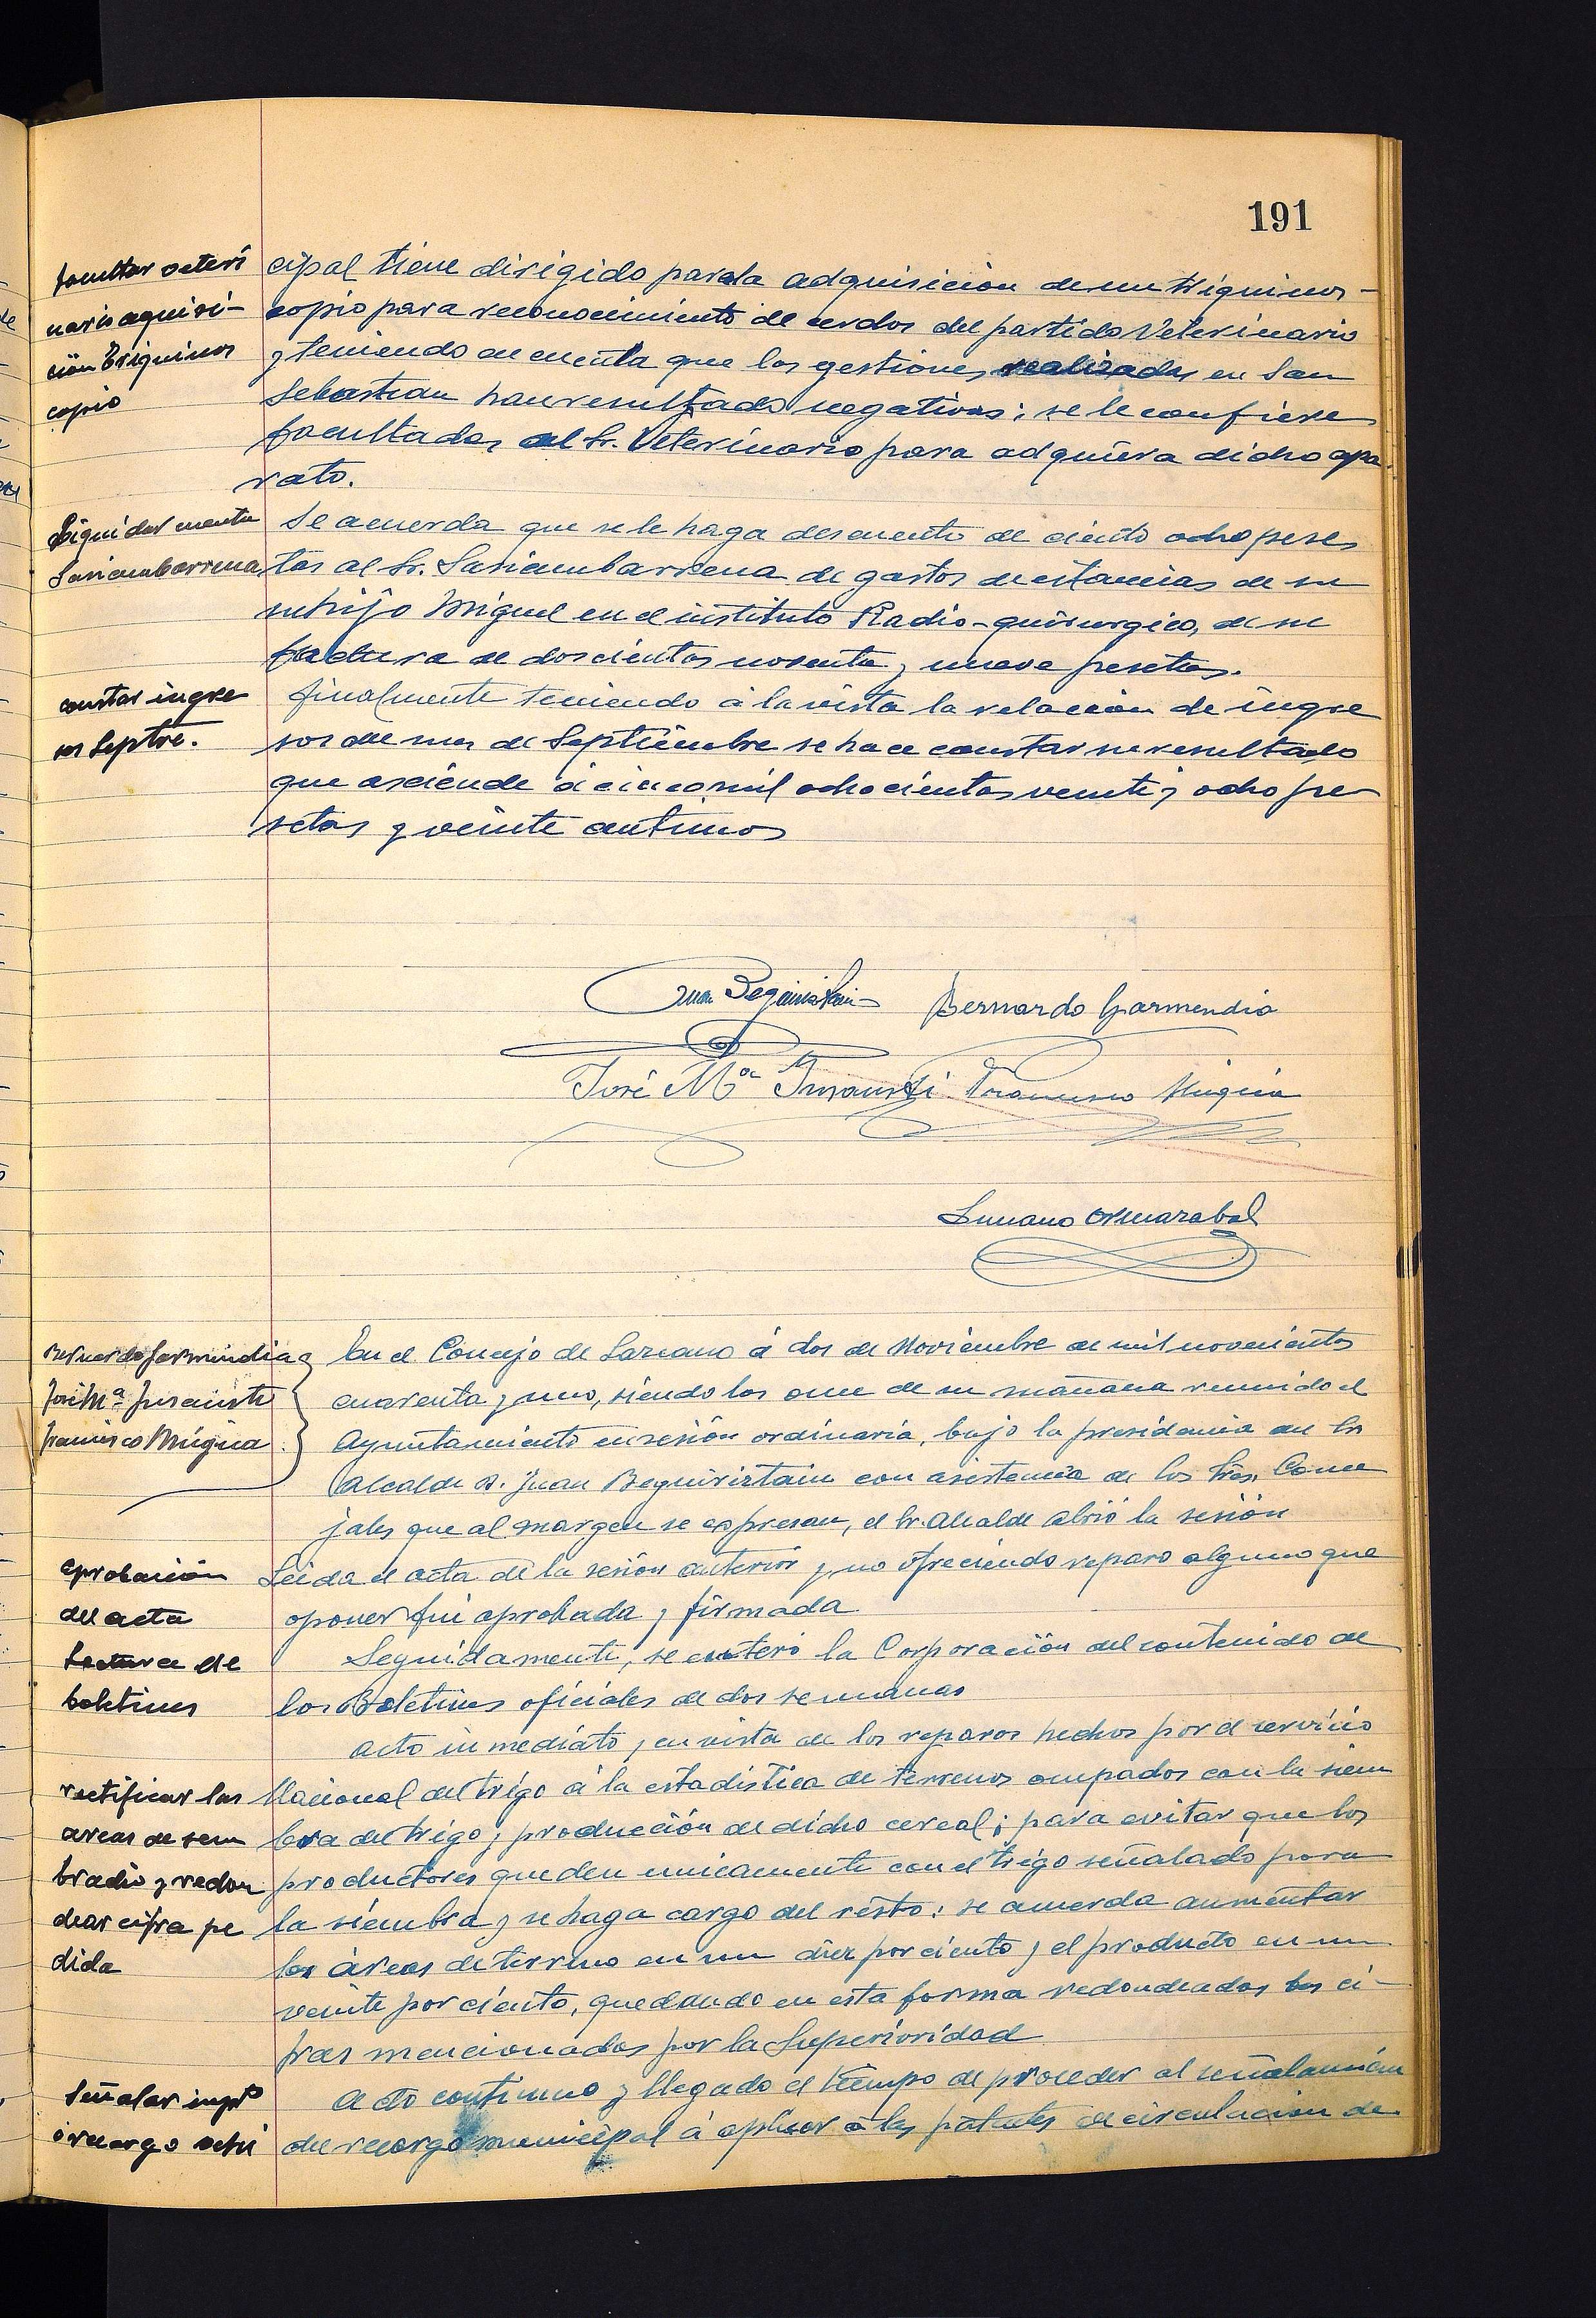 191
facultar veteri
nario aquisi-
ción Triquinos
copio
cipal tiene dirigido para la adquisición de un triquinos-
copio para reconocimiento de cerdos del partido Veterinario
y teniendo en cuenta que las gestiones realizadas en San
Sebastian han resultado negativas; se le confiere
facultades al Sr. Veterinario para adquiera dicho apa-
rato.
Liquidar cuenta
Sasiambarrena
Se acuerda que se le haga descuento de ciento ocho pese
tas al Sr. Sasiambarrena de gastos de estancias de su
su hijo Miguel en el instituto Radio-quirurgico, de su
factura de doscientas noventa y nueve pesetas.
constar ingre
sos Septre.
finalmente teniendo á la vista la relación de ingre
sos del mes de Septiembre se hace constar su resultado
que asciende á cinco mil ochocientas veinte y ocho pe
setas y veinte centimos
Juan Beguiristain
Bernardo Garmendia
José Mª Insausti
Francisco Múgica
Luciano Ormazabal
Bernardo Garmendia
José Mª Insausti
Francisco Múgica
En el Concejo de Lazcano á dos de Noviembre de mil novecientos
cuarenta y uno, siendo las once de su mañana reunido el
Ayuntamiento en sesión ordinaria, bajo la presidencia del Sr
Alcalde D. Juan Beguiristain con asistencia de los Sres. Conce
jales que al margen se expresan, el Sr. Alcalde abrió la sesión
aprobación
del acta
Leida el acta de la sesión anterior y no ofreciendo reparo alguno que
oponer fué aprobada y firmada
Lectura de
boletines
Seguidamente, se enteró la Corporación del contenido de
los Boletines oficiales de dos semanas
rectificar las
areas de sem
bradio y redon
dear cifra pe
dida
Acto inmediato, en vista de los reparos hechos por el servicio
Nacional del trigo á la estadística de terrenos ocupados con la siem
bra del trigo y producción de dicho cereal; para evitar que los
productores queden unicamente con el trigo señalado para
la siembra y se haga cargo del resto: se acuerda aumentar
las áreas de terreno en un diez por ciento y el producto en un
veinte por ciento, quedando en esta forma redondeadas las ci-
fras mencionadas por la Superioridad
Señalar impto
ó recargo vehi
Acto continuo y llegado el tiempo de proceder al señalamien
del recargo municipal á aplicar á las patentes de circulación de